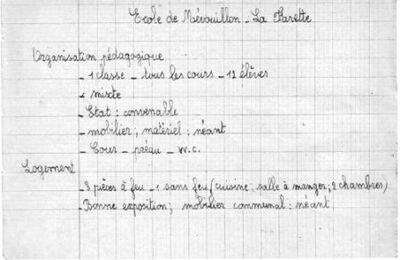 Ecole de Mévouillon - La Farette
Organisation pédagogique
- 1 classe - tous les cours - 12 élèves
- mixte
- Etat : convenable
- mobilier, matériel : néant
- Cour - préau - W.C.
Logement
- 3 pièces à feu - 1 sans feu (cuisine, salle à manger, 2 chambres)
- Bonne exposition ; mobilier communal : néant